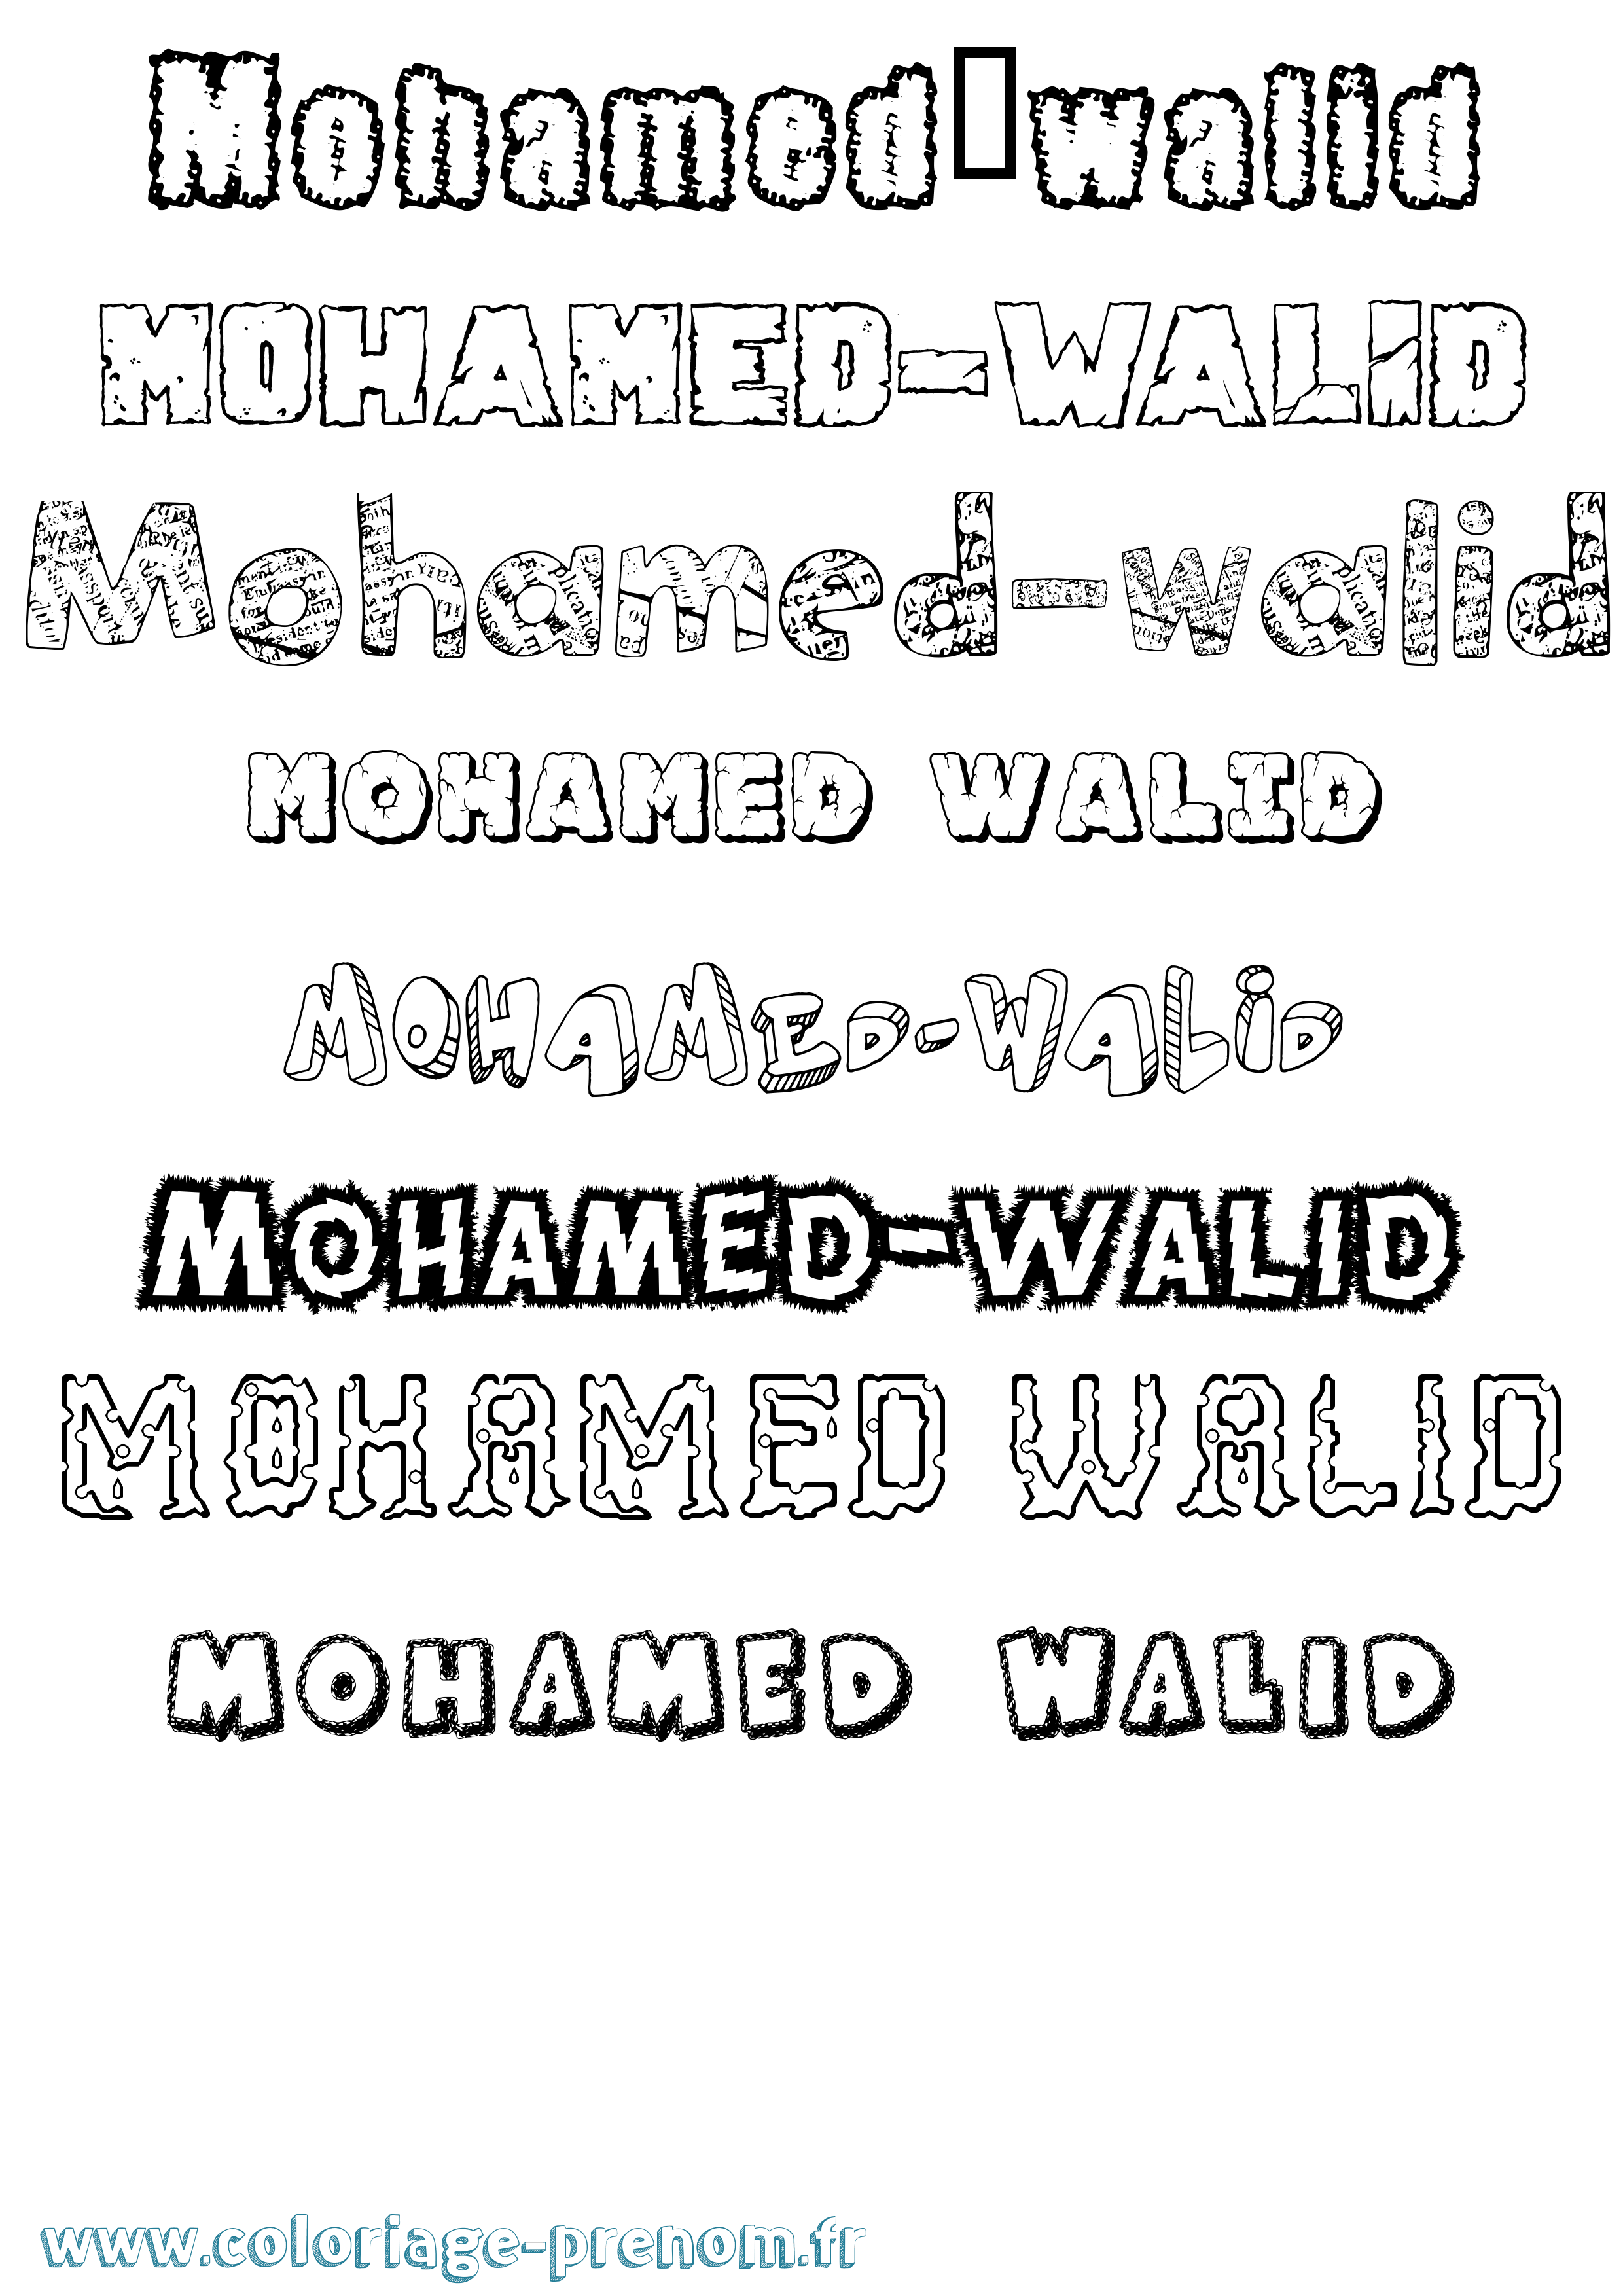 Mohamed▯walid
MOHAMED-WALiD
Mohamed-walid
MOHAMED WALID
MOHAMED-WALiD
MOHAMED-WALID
MOHAMED WALID
MOHAMED WALID
www.coloriage-prenom.fr